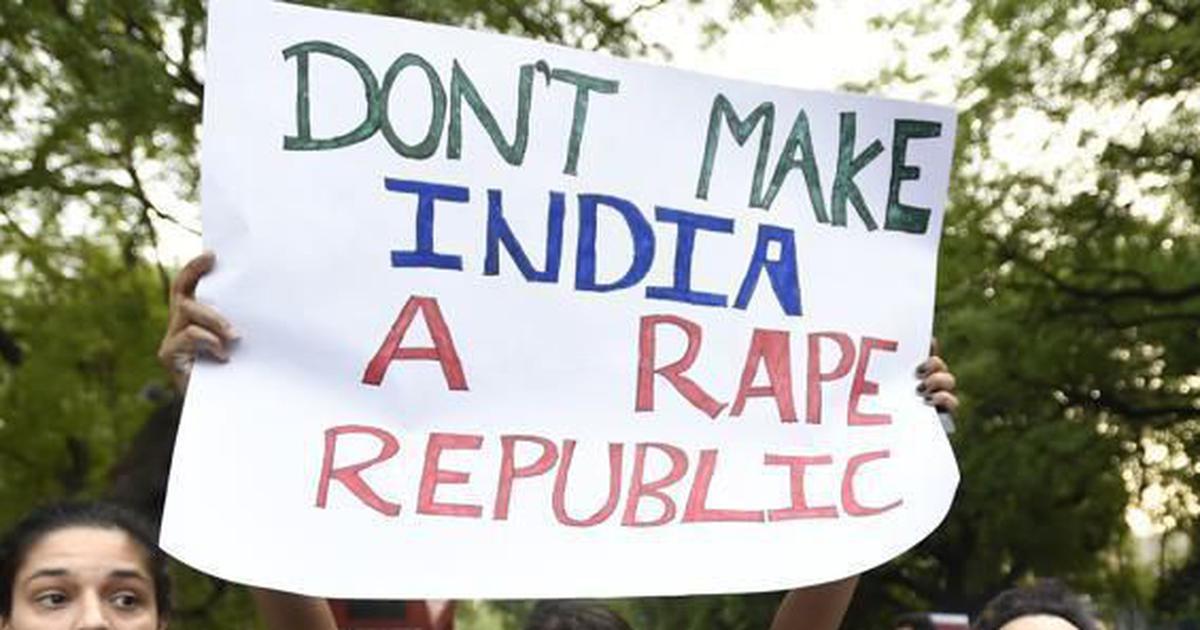 DON'T MAKE
INDIA
A RAPE
REPUBLIC